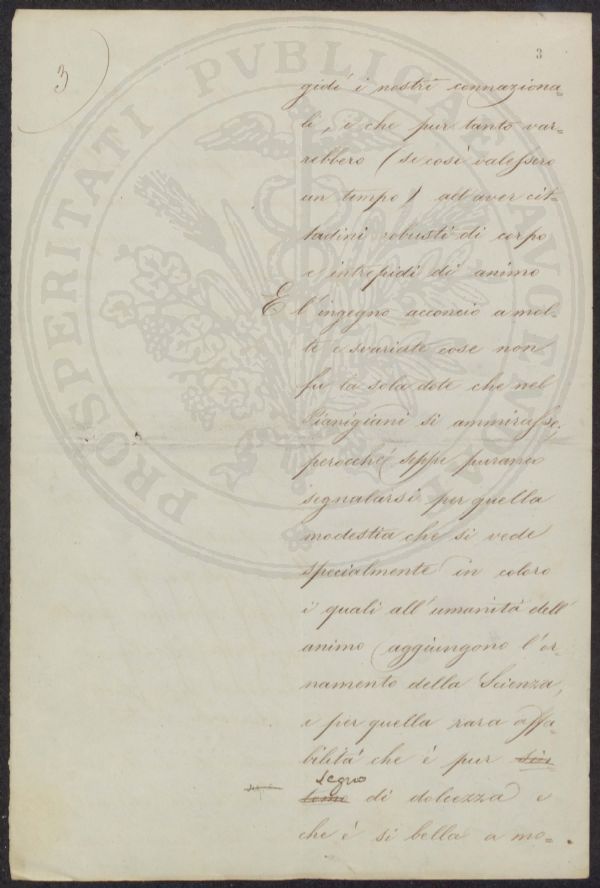 3
3
gidi i nostri conmaziona=
li, e che pur tanto var=
rebbero (se così valessero
un tempo) ad aver cit=
tadini robusti di corpo
e intrepidi di animo
E l'ingegno acconcio a mol=
te e svariate cose non
fu la sola dote che nel
Pianigiani si ammirasse,
perocché seppe puranco
segnalarsi per quella
modestia che si vede
specialmente in coloro
i quali all'umanità dell'
animo aggiungono l'or=
namento della Scienza,
e per quella rara affa=
bilità che è pur sin
tomo segno di dolcezza e
che è si bella a mo=
PROSPERITATI PVBLICAE AVGENDAE